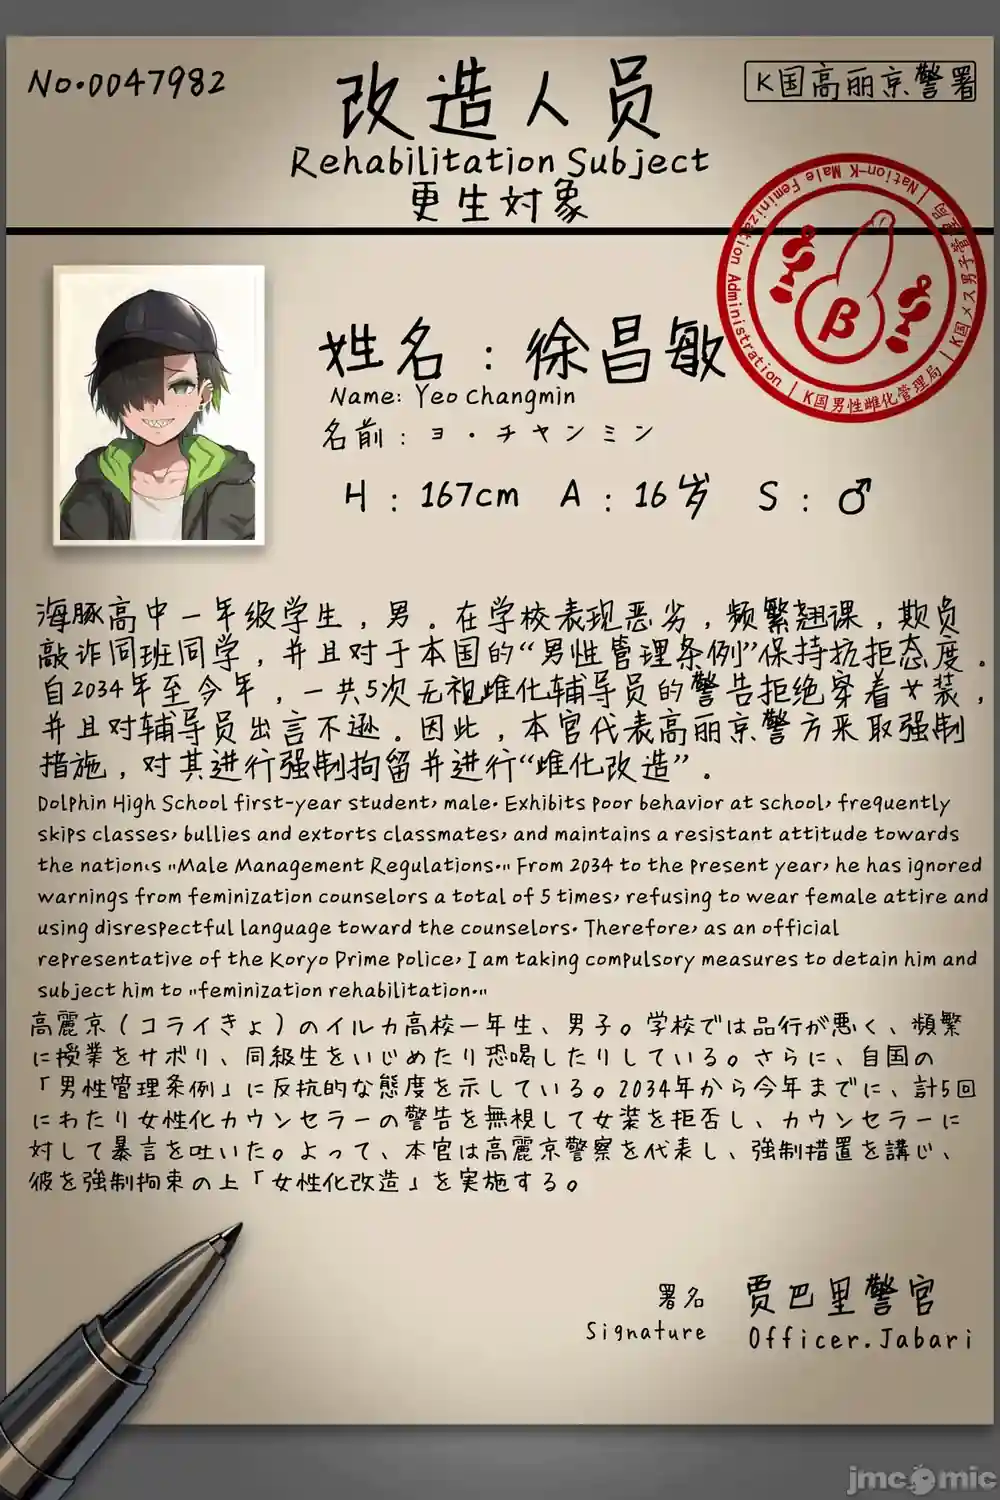 No.0047982
改造人员
K国高丽京警署
Rehabilitation Subject
更生対象
Nation-K Male Feminization Administration | K国男性雌化管理局 | K国メス男子管理局 |
β
姓名：徐昌敏
Name: Yeo Changmin
名前：ヨ・チャンミン
H：167cm A：16岁 S：♂
海豚高中一年级学生，男。在学校表现恶劣，频繁翘课，欺负
敲诈同班同学，并且对于本国的“男性管理条例”保持抗拒态度。
自2034年至今年，一共5次无视雌化辅导员的警告拒绝穿着女装，
并且对辅导员出言不逊。因此，本官代表高丽京警方采取强制
措施，对其进行强制拘留并进行“雌化改造”。
Dolphin High School first-year student, male. Exhibits poor behavior at school, frequently
skips classes, bullies and extorts classmates, and maintains a resistant attitude towards
the nation's "Male Management Regulations." From 2034 to the present year, he has ignored
warnings from feminization counselors a total of 5 times, refusing to wear female attire and
using disrespectful language toward the counselors. Therefore, as an official
representative of the Koryo Prime police, I am taking compulsory measures to detain him and
subject him to "feminization rehabilitation."
高麗京（コライきょ）のイルカ高校一年生、男子。学校では品行が悪く、頻繁
に授業をサボり、同級生をいじめたり恐喝したりしている。さらに、自国の
「男性管理条例」に反抗的な態度を示している。2034年から今年までに、計5回
にわたり女性化カウンセラーの警告を無視して女装を拒否し、カウンセラーに
対して暴言を吐いた。よって、本官は高麗京警察を代表し、強制措置を講じ、
彼を強制拘束の上「女性化改造」を実施する。
署名 贾巴里警官
Signature Officer.Jabari
jmcomic